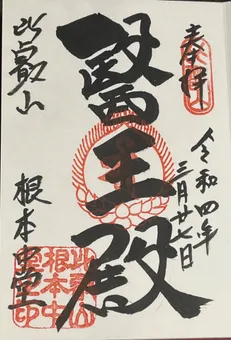 奉拝
令和四年
三月廿七日
醫王殿
比叡山
根本中堂
比叡山
根本中
堂之印